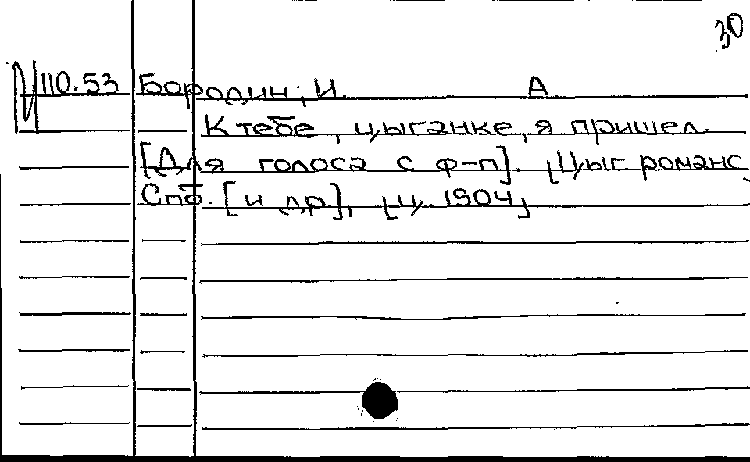 30
Ц110.53 Бородин, И. А
К тебе, цыганке, я пришел
[Для голоса с ф-п]. [Цыг. романс,
Спб. [и др], [ц. 1904]